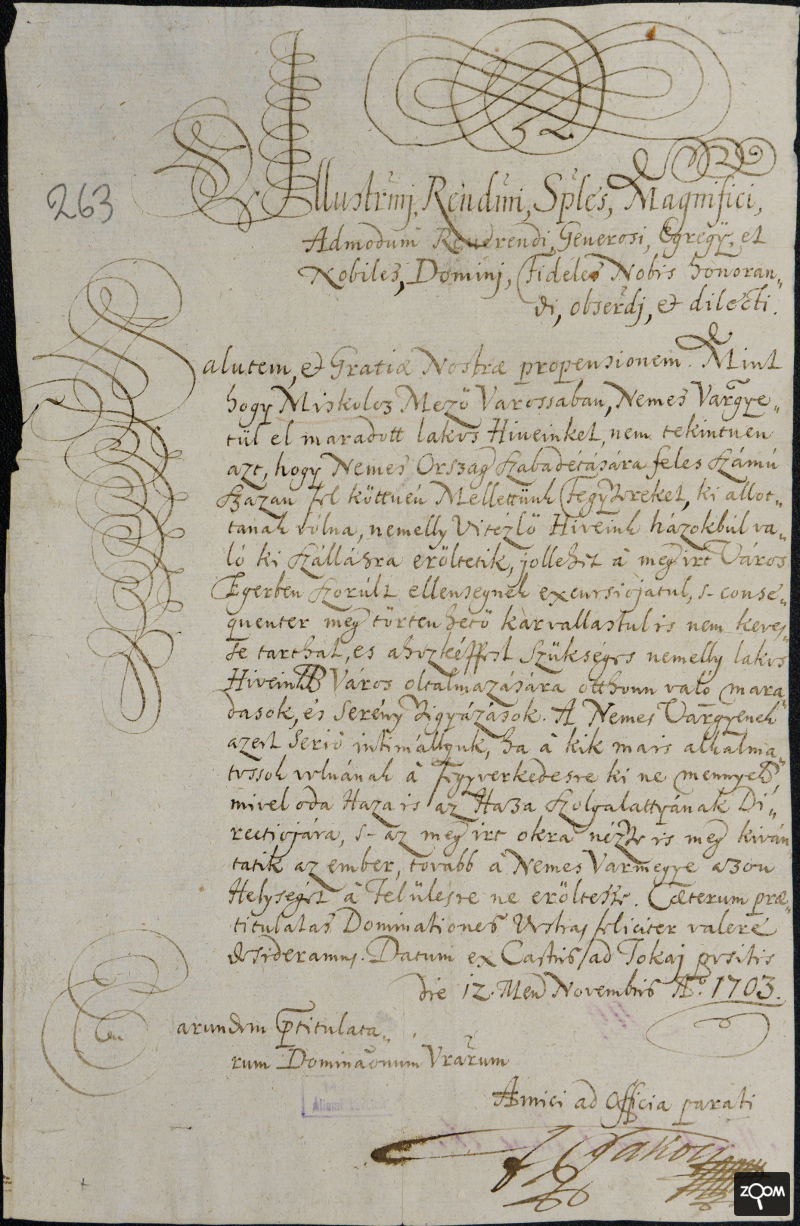 52
263
Illustrmj, Rendmi, Sples, Magnifici,
Admodum Reverendi, Generosi, Egregÿ, et
Nobiles, Dominj, Fideles Nobis honoran„
di, obserdj, et dilecti.
Salutem, et Gratiæ Nostræ propensionem. Mint
hogy Miskolcz Mezö Varossaban, Nemes Vargye„
tül el maradott lakos Hiveinket, nem tekintven
azt, hogy Nemes Orszag szabadétására feles számú
Hazan fel köttvén Mellettünk Fegyvereket, ki allot„
tanak vólna, nemelly Vitézlö Hiveink házokbúl va„
ló ki szállásra eröltetik, jollehet à meg irt Város
Egerben szorúlt ellensegnek excursiojatul, s- conse„
quenter meg törtenhetö kàrvallastul is nem keves„
sé tarthat, es ahozképpest szükséges nemelly lakos
Hiveink Város oltalmazására otthonn való mara
dasok, és serény vigyázások. A Nemes Vargyenek
azert serio intimállyuk, ha à kik mais alkalma„
tossok volnának à fegyverkedesre ki ne mennyek,
mivel oda Haza is az Haza szolgalattyának Di„
rectiojára, s- az meg irt okra nézve is meg kiván
tatik az ember, tovább à Nemes Varmegye azon
Helységet à felülésre ne eröltesse. Cæterum præ„
titulatas Dominationes Vrstras feliciter valere
desideramus. Datum ex Castris ad Tokaj positis
die 12. Men Novembris Ao. 1703.
Earundem Ptitulata„
rum Dominãonum Vrarum
Amici ad officia parati
ZOOM